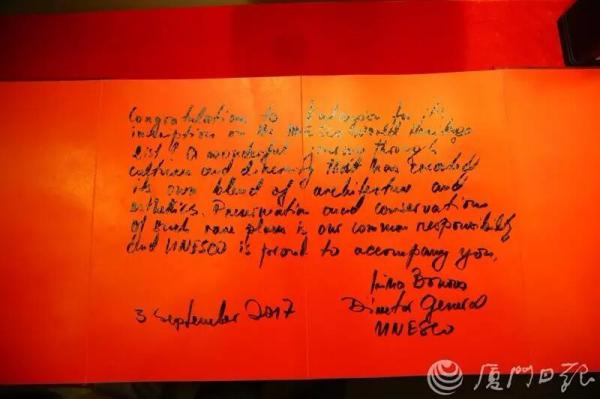 Congratulations to Kulangsu for its
inscription on the UNESCO World Heritage
List! A wonderful journey through
cultures and diversity that has created
its own blend of architecture and
esthetics. Preservation and conservations
of such rare places is our common responsibility
and UNESCO is proud to accompany you.
Irina Bokova
Director General
UNESCO
3 September 2017
厦门日报